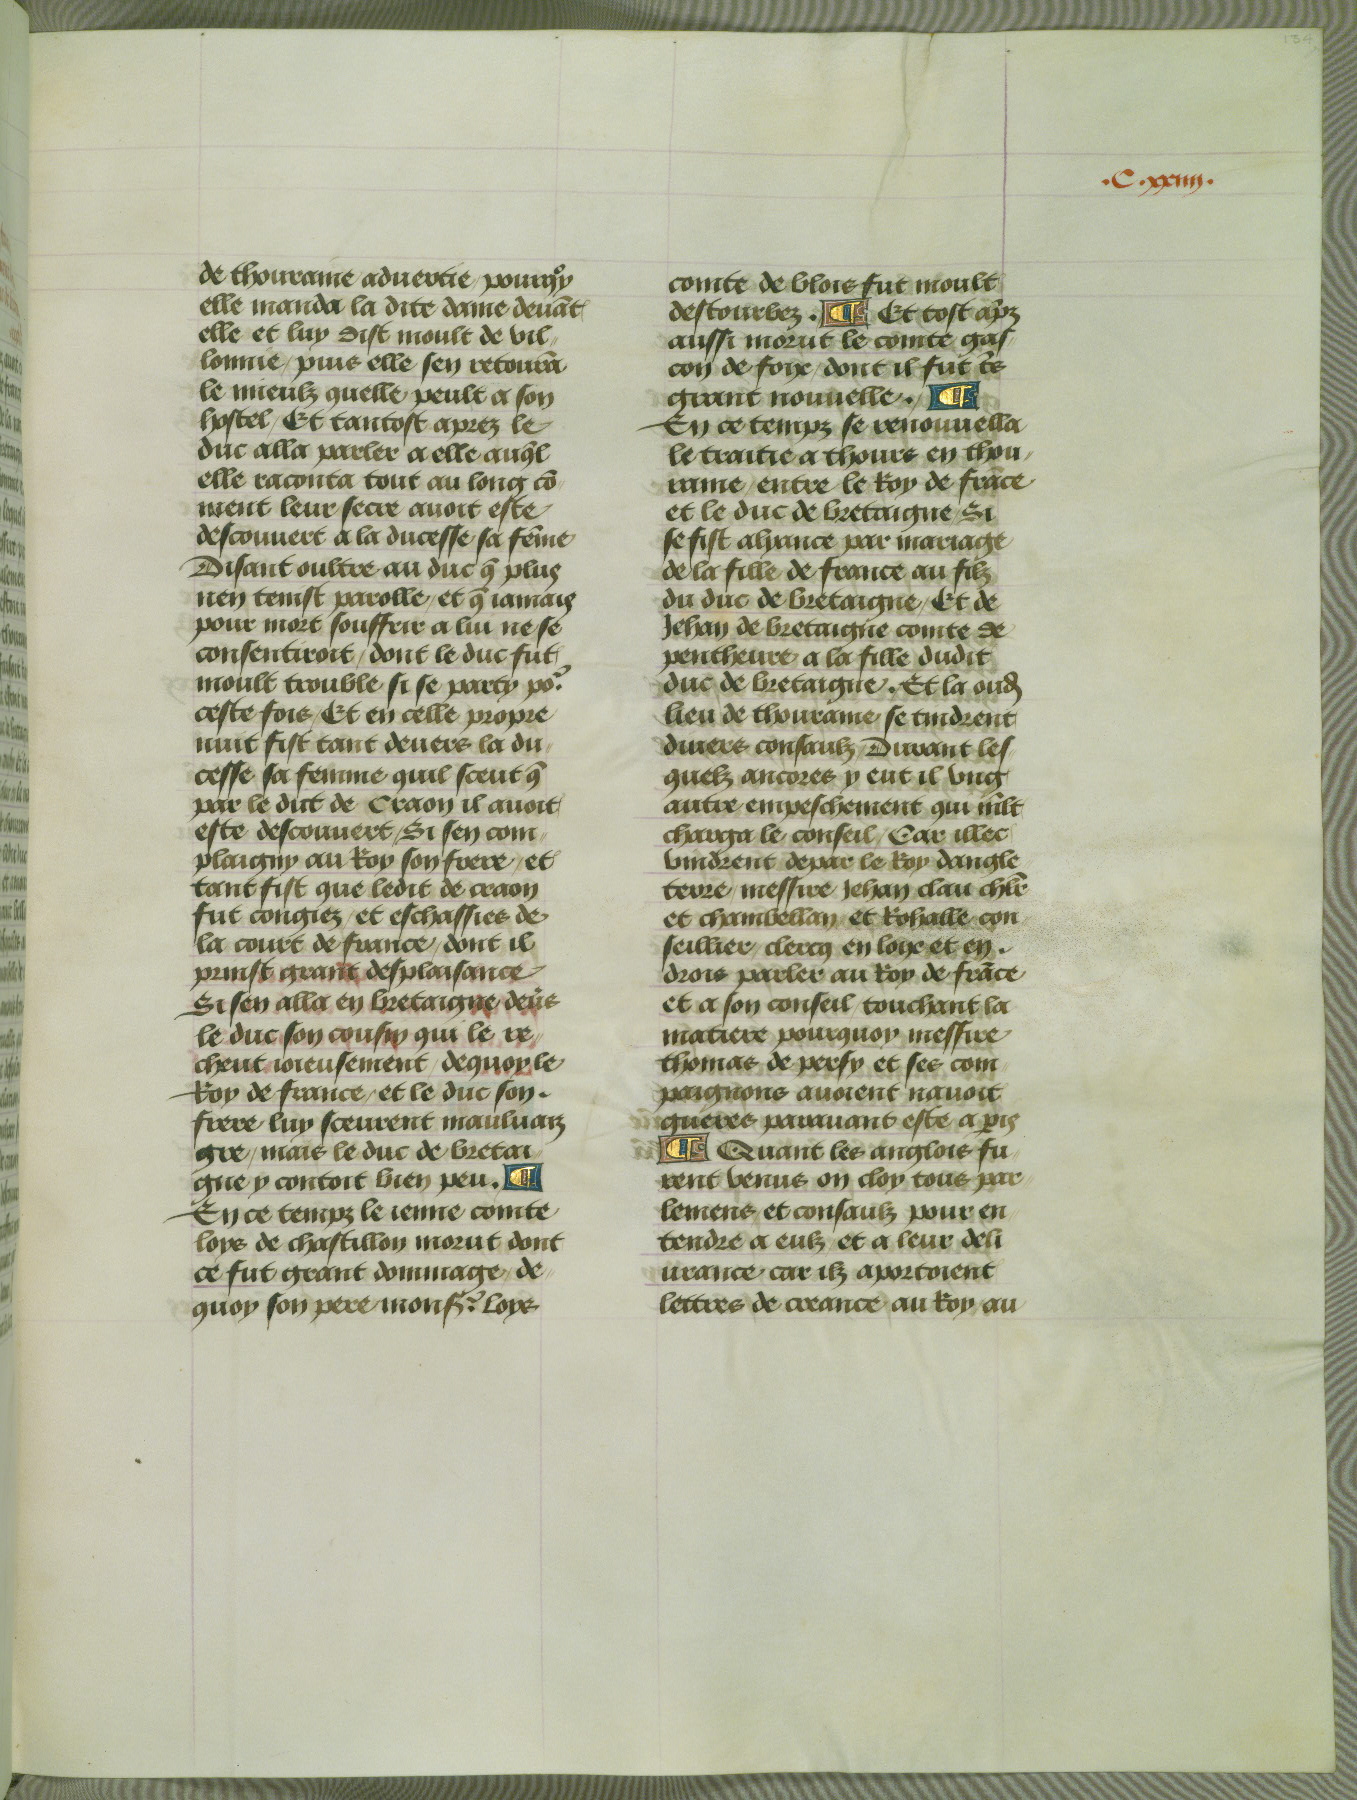 134
.C.xxiiij.
de thouraine aduertie / pourqoy
elle manda la dite dame deuāt
elle et luy dist moult de vil//
lonnie / puis elle sen retourna
le mieulz quelle peult a son
hostel / Et tantost aprez le
duc alla parler a elle auql
elle raconta tout au long cō
ment leur secre auoit este
descouuert a la ducesse sa fēme
Disant oultre au duc q̄ plus
nen tenist parolle / et q̄ iamais
pour mort souffrir a lui ne se
consentiroit / dont le duc fut
moult trouble si se party por
ceste fois / Et en celle propre
nuit fist tant deuers la du//
cesse sa femme quil sceut q̄
par le dict de Craon il auoit
este descouuert / Si sen com//
plaigny au Roy son frere / et
tant fist que ledit de craon
fut congiez / et eschassies de
la court de france / dont il
prinst grant desplaisance
Si sen alla en bretaigne deūs
le duc son cousin qui le re//
cheut ioieusement / dequoy le
Roy de france / et le duc son .
frere luy sceurent mauluaiz
gre / mais le duc de bretai//
gne y contoit bien peu . ¶
En ce tempz le ienne comte
loys de chastillon morut dont
ce fut grant dommage / de
quoy son pere monsr loys
comte de blois fut moult
destourbez . ¶ Et tost aprz
aussi morut le comte gas//
con de foix / dont il fut tēs
grant nouuelle . ¶
En ce tempz se renouuella
le traitie a thours en thou//
raine / entre le Roy de frāce
et le duc de bretaigne Si
se fist aliyance par mariage
de la fille de france au filz
du duc de bretaigne / Et de
Jehan de bretaigne comte de
pentheure a la fille dudit
duc de bretaigne . Et la oudi
lieu de thouraine se tindrent
diuers consaulz Durant les//
quelz ancores y eut il vng
autre empeschement qui mlt
charga le conseil / Car illec
vindrent depar le Roy dangle
terre / messire Jehan clau chlr
et chambellan et Rohalle con
seillier / clercq en loix et en .
drois parler au Roy de frāce
et a son conseil / touchant la
matiere pourquoy messire
thomas de persy et ses com
paignons auoient nauoit
gueres parauant este a pis
¶ Quant les anglois fu//
rent venus on cloy tous par
lemens et consaulz pour en
tendre a eulz et a leur deli
urance car ilz aportoient
lettres de creance au Roy au